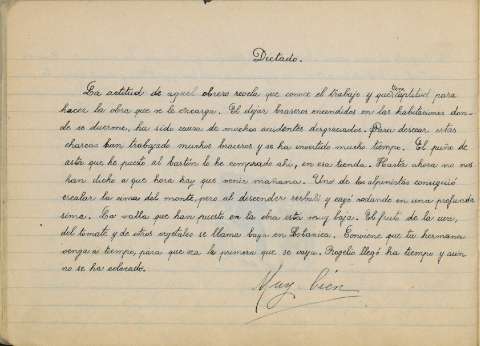 Dictado.
La actitud de aquel obrero revela que conoce el trabajo y que tiene aptitud para
hacer la obra que se le encarga. El dejar braseros encendidos en las habitaciones don-
de se duerme, ha sido causa de muchos accidentes desgraciados. Para desecar estas
charcas han trabajado muchos braceros y se ha invertido mucho tiempo. El puño de
asta que he puesto al bastón lo he comprado ahí, en esa tienda. Hasta ahora no nos
han dicho a que hora hay que venir mañana. Uno de los alpinistas consiguió
escalar la cima del monte, pero al descender resbaló y cayó rodando en una profunda
sima. La valla que han puesto en la obra está muy baja. El fruto de la uva,
del tomate y de otros vegetales se llama baya en Botánica. Conviene que tu hermana
venga a tiempo, para que sea la primera que se vaya. Rogelio llegó ha tiempo y aún
no se ha colocado.
Muy bien